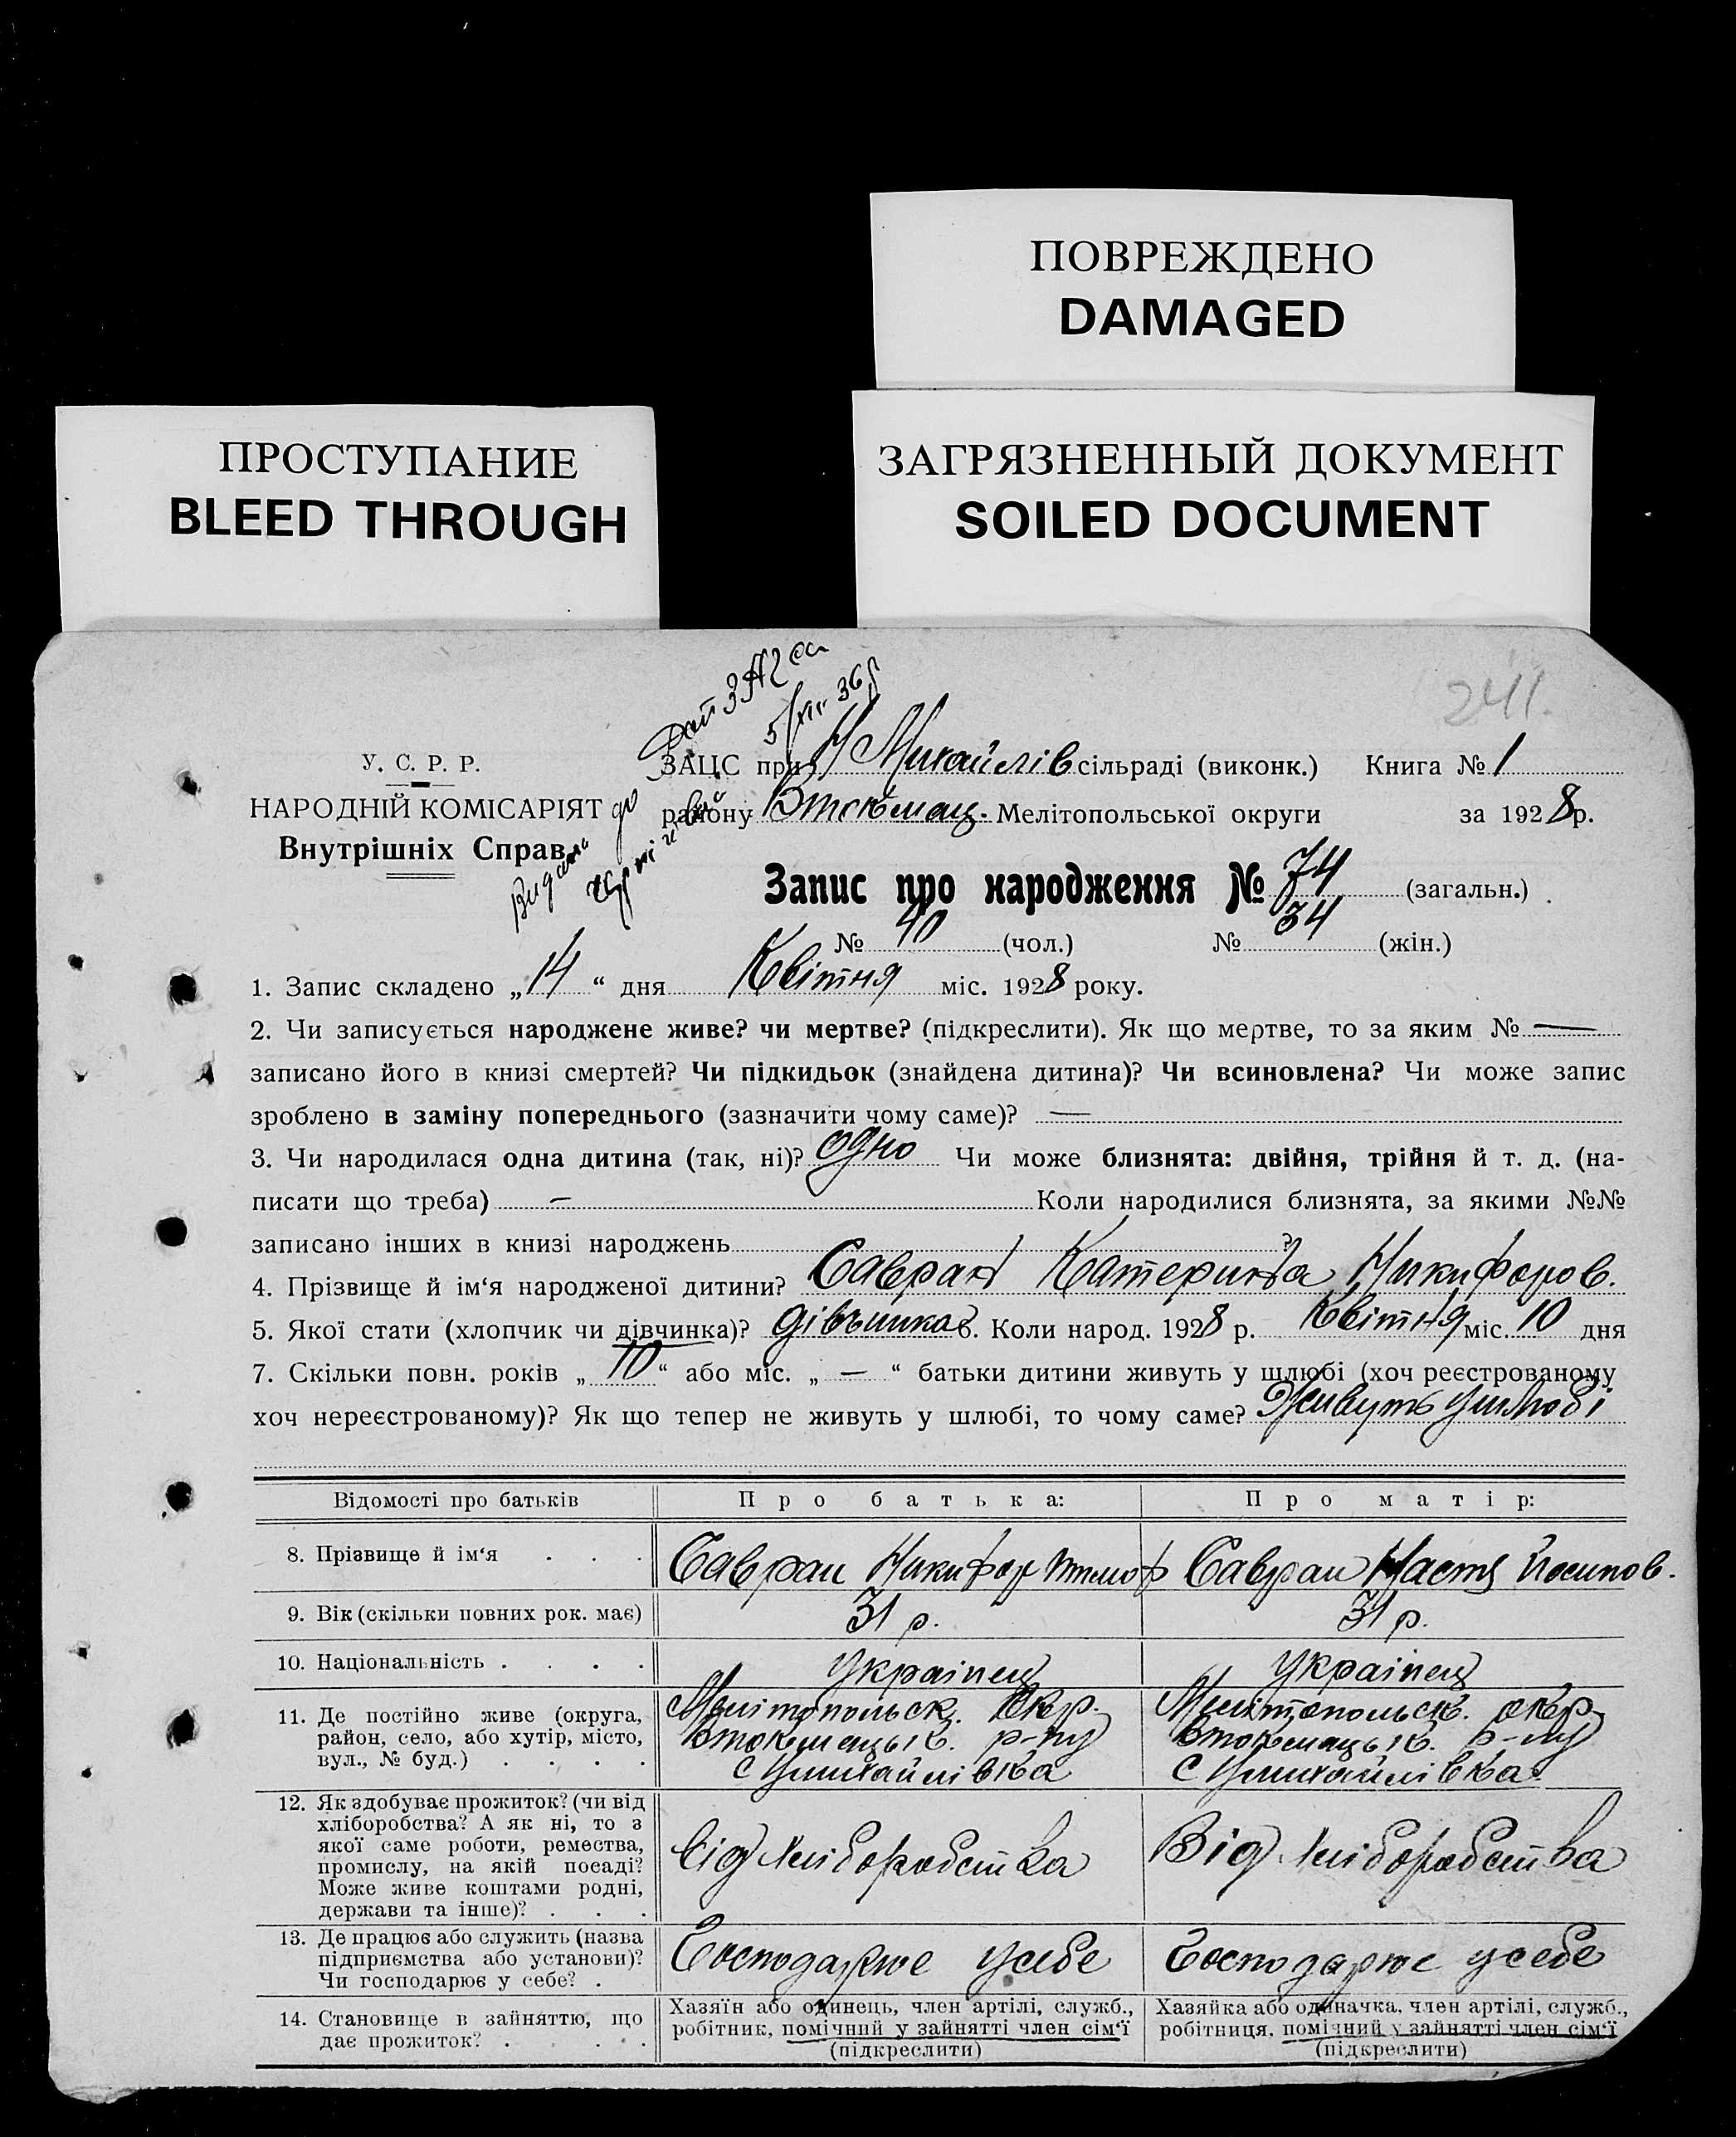 ПОВРЕЖДЕНО
DAMAGED
ПРОСТУПАНИЕ
BLEED THROUGH
ЗАГРЯЗНЕННЫЙ ДОКУМЕНТ
SOILED DOCUMENT
241.
У. С. Р. Р.
НАРОДНІЙ КОМІСАРІЯТ
Внутрішніх Справ
ЗАЦС при Н Михайлів сільраді (виконк.) Книга № 1
району Втокмац. Мелітопольської округи за 1928 р.
Запис про народження № 74 (загальн.)
№ 40 (чол.) № 34 (жін.)
1. Запис складено „14“ дня Квітня міс. 1928 року.
2. Чи записується народжене живе? чи мертве? (підкреслити). Як що мертве, то за яким № —
записано його в книзі смертей? Чи підкидьок (знайдена дитина)? Чи всиновлена? Чи може запис
зроблено в заміну попереднього (зазначити чому саме)? —
3. Чи народилася одна дитина (так, ні)? одно Чи може близнята: двійня, трійня й т. д. (на-
писати що треба) — Коли народилися близнята, за якими №№
записано інших в книзі народжень ?
4. Прізвище й ім‘я народженої дитини? Савран Катерина Никифоров.
5. Якої стати (хлопчик чи дівчинка)? дівчинка 6. Коли народ. 1928 р. Квітня міс. 10 дня
7. Скільки повн. років „10“ або міс. „ — “ батьки дитини живуть у шлюбі (хоч реєстрованому
хоч нереєстрованому)? Як що тепер не живуть у шлюбі, то чому саме? Живуть у шлюбі
Відомості про батьків Про батька: Про матір:
8. Прізвище й ім‘я . . . Савран Никифор Савран Настя Йосипов.
9. Вік (скільки повних рок. має) 31 р. 31 р.
10. Національність . . . . Українец Українец
11. Де постійно живе (округа,
район, село, або хутір, місто,
вул., № буд.) . . . .
Мелітопольск. Окр.
Втокмацьк. р-ну
с Нмихайлівка
Мелітопольск. окр.
Втокмацьк. р-ну
с Нмихайлівка
12. Як здобуває прожиток? (чи від
хліборобства? А як ні, то з
якої саме роботи, ремества,
промислу, на якій посаді?
Може живе коштами родні,
держави та інше)? . . .
Від хліборобства
Від хліборобства
13. Де працює або служить (назва
підприємства або установи)?
Чи господарює у себе? .
Господарює усебе
Господарює усебе
14. Становище в зайняттю, що
дає прожиток? . . . .
Хазяїн або одинець, член артілі, служб.,
робітник, помічний у зайнятті член сім‘ї
(підкреслити)
Хазяйка або одиначка, член артілі, служб.,
робітниця, помічний у зайнятті член сім‘ї
(підкреслити)